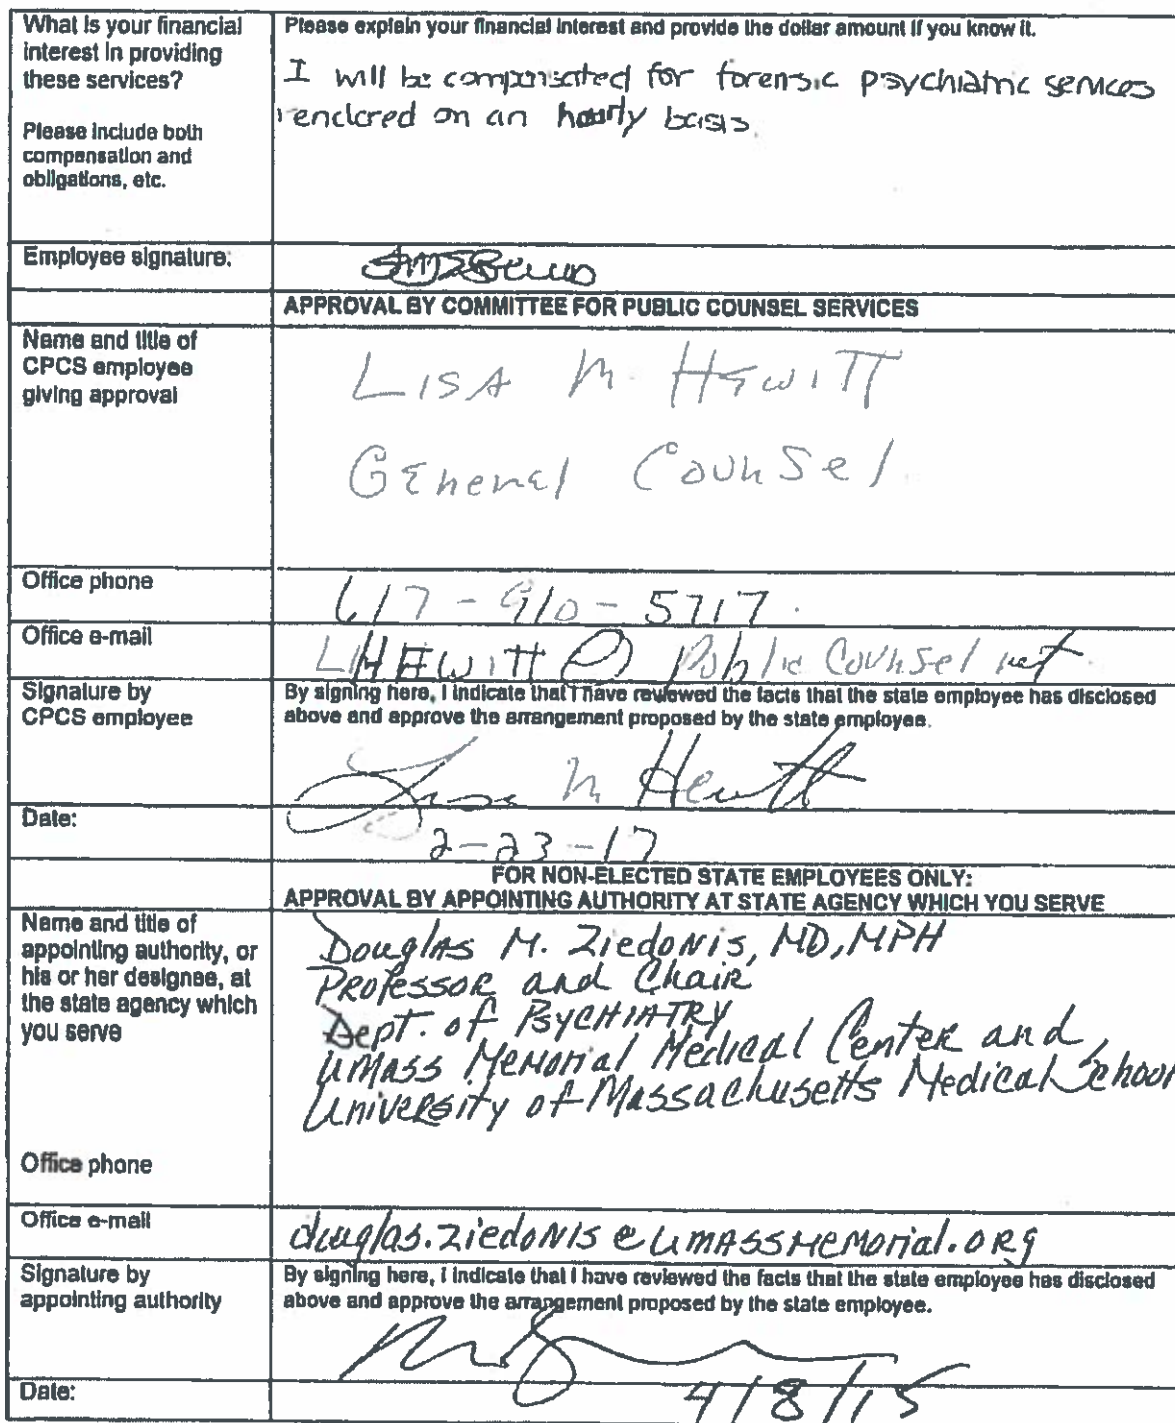 What is your financial
interest in providing
these services?
Please include both
compensation and
obligations, etc.
Please explain your financial interest and provide the dollar amount if you know it.
I will be compensated for forensic psychiatric services
rendered on an hourly basis.
Employee signature:
APPROVAL BY COMMITTEE FOR PUBLIC COUNSEL SERVICES
Name and title of
CPCS employee
giving approval
LISA M. HEWITT
GENERAL COUNSEL
Office phone
617-910-5717
Office e-mail
LHEWITT @ Public Counsel net
Signature by
CPCS employee
By signing here, I indicate that I have reviewed the facts that the state employee has disclosed
above and approve the arrangement proposed by the state employee.
Lisa M Hewitt
Date:
2-23-17
FOR NON-ELECTED STATE EMPLOYEES ONLY:
APPROVAL BY APPOINTING AUTHORITY AT STATE AGENCY WHICH YOU SERVE
Name and title of
appointing authority, or
his or her designee, at
the state agency which
you serve
Douglas M. Ziedonis, MD, MPH
Professor and Chair
Dept. of Psychiatry
UMass Memorial Medical Center and
University of Massachusetts Medical School
Office phone
Office e-mail
douglas.ziedonis@umassmemorial.org
Signature by
appointing authority
By signing here, I indicate that I have reviewed the facts that the state employee has disclosed
above and approve the arrangement proposed by the state employee.
Date:
4/8/15